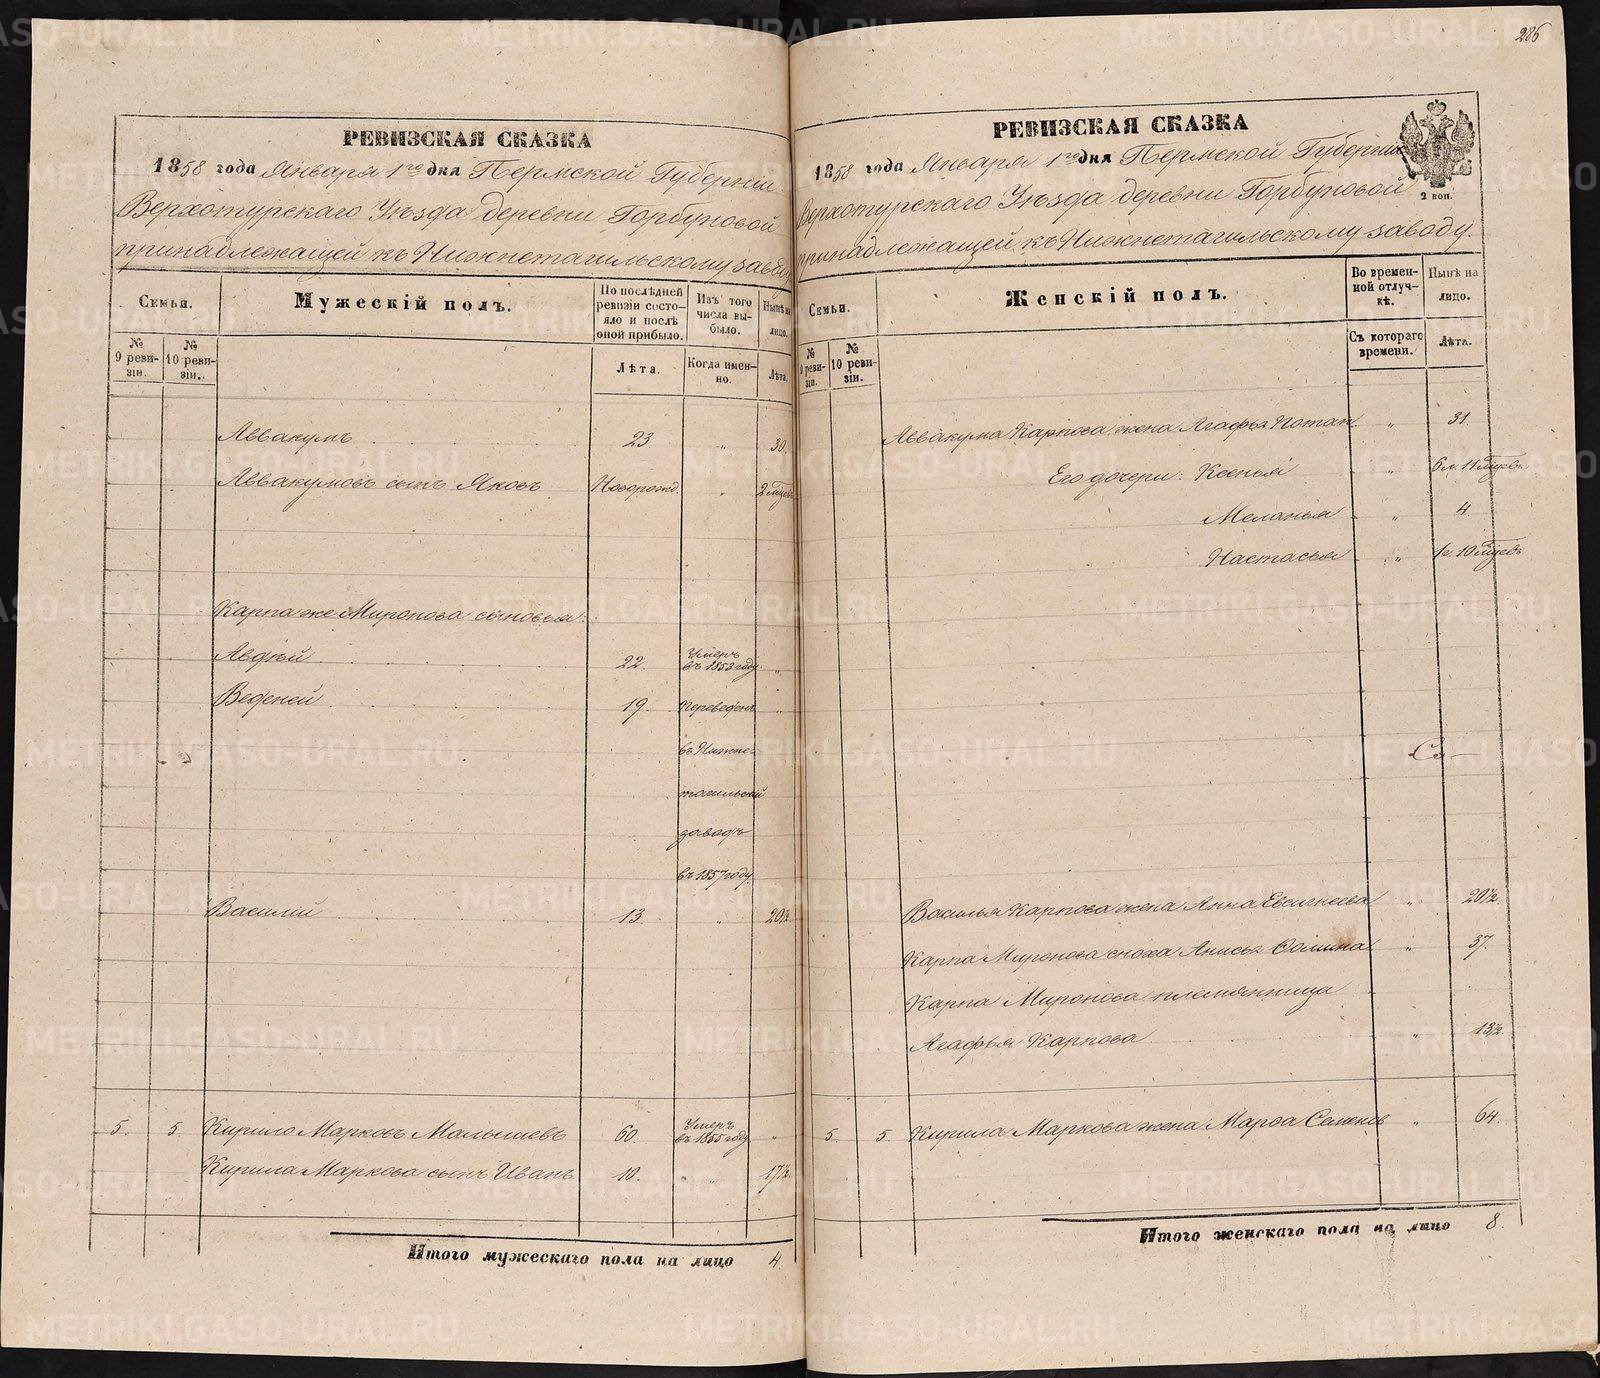 286
РЕВИЗСКАЯ СКАЗКА
1858 года Января 1го дня Пермской Губерніи
Верхотурскаго Уѣзда деревни Горбуновой
принадлежащей къ Нижнетагильскому заводу
Семьи.
Мужескій полъ.
По послѣдней ревизіи состояло и послѣ оной прибыло.
Изъ того числа выбыло.
Нынѣ на лицо.
№ 9 ревизіи.
№ 10 ревизіи.
Лѣта.
Когда именно.
Лѣта.
Аввакумъ 23 „ 30.
Аввакумовъ сынъ Яковъ Новорожд. „ 2 мцевъ
Карпа же Миронова сыновья:
Авдѣй 22. Умеръ въ 1853 году. „
Веденей 19. Переведенъ „
въ Нижне-
тагильскій
заводъ
въ 1857 году.
Василій 13 „ 20½
5. 5. Кирило Марковъ Малышевъ 60. Умеръ въ 1855 году „
Кирила Маркова сынъ Иванъ 10. „ „ 17½
Итого мужескаго пола на лицо 4.
РЕВИЗСКАЯ СКАЗКА
1858 года Января 1го дня Пермской Губерніи
2 коп.
Верхотурскаго Уѣзда деревни Горбуновой
принадлежащей къ Нижнетагильскому заводу.
Семьи.
Женскій полъ.
Во временной отлучкѣ.
Нынѣ на лицо.
№ 9 ревизіи.
№ 10 ревизіи.
Съ котораго времени.
Лѣта.
Аввакума Карпова жена Агафья Потап. „ 31.
Его дочери: Ксенья „ 6 л. 11 мцевъ
Меланья „ 4
Настасья „ 1 г. 10 мцевъ
Василья Карпова жена Анна Евсигнеева „ 20½
Карпа Миронова сноха Анисья Фомина „ 37.
Карпа Миронова племянница
Агафья Карпова „ 13½
5. 5. Кирила Маркова жена Марфа Семенов „ 64.
Итого женскаго пола на лицо 8.
METRIKI.GASO-URAL.RU